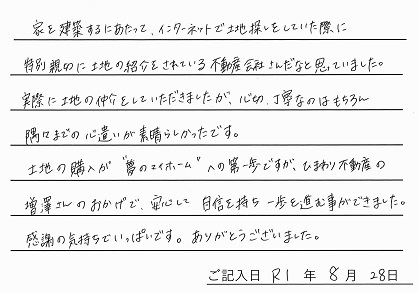 家を建築するにあたって、インターネットで土地探しをしていた際に
特別親切に土地の紹介をされている不動産会社さんだなと思っていました。
実際に土地の仲介をしていただきましたが、心切、丁寧なのはもちろん
隅々までの心遣いが素晴らしかったです。
土地の購入が"夢のマイホーム"への第一歩ですが、ひまわり不動産の
増澤さんのおかげで、安心して自信を持ち一歩を進む事ができました。
感謝の気持ちでいっぱいです。ありがとうございました。
ご記入日 R1 年 8 月 28日